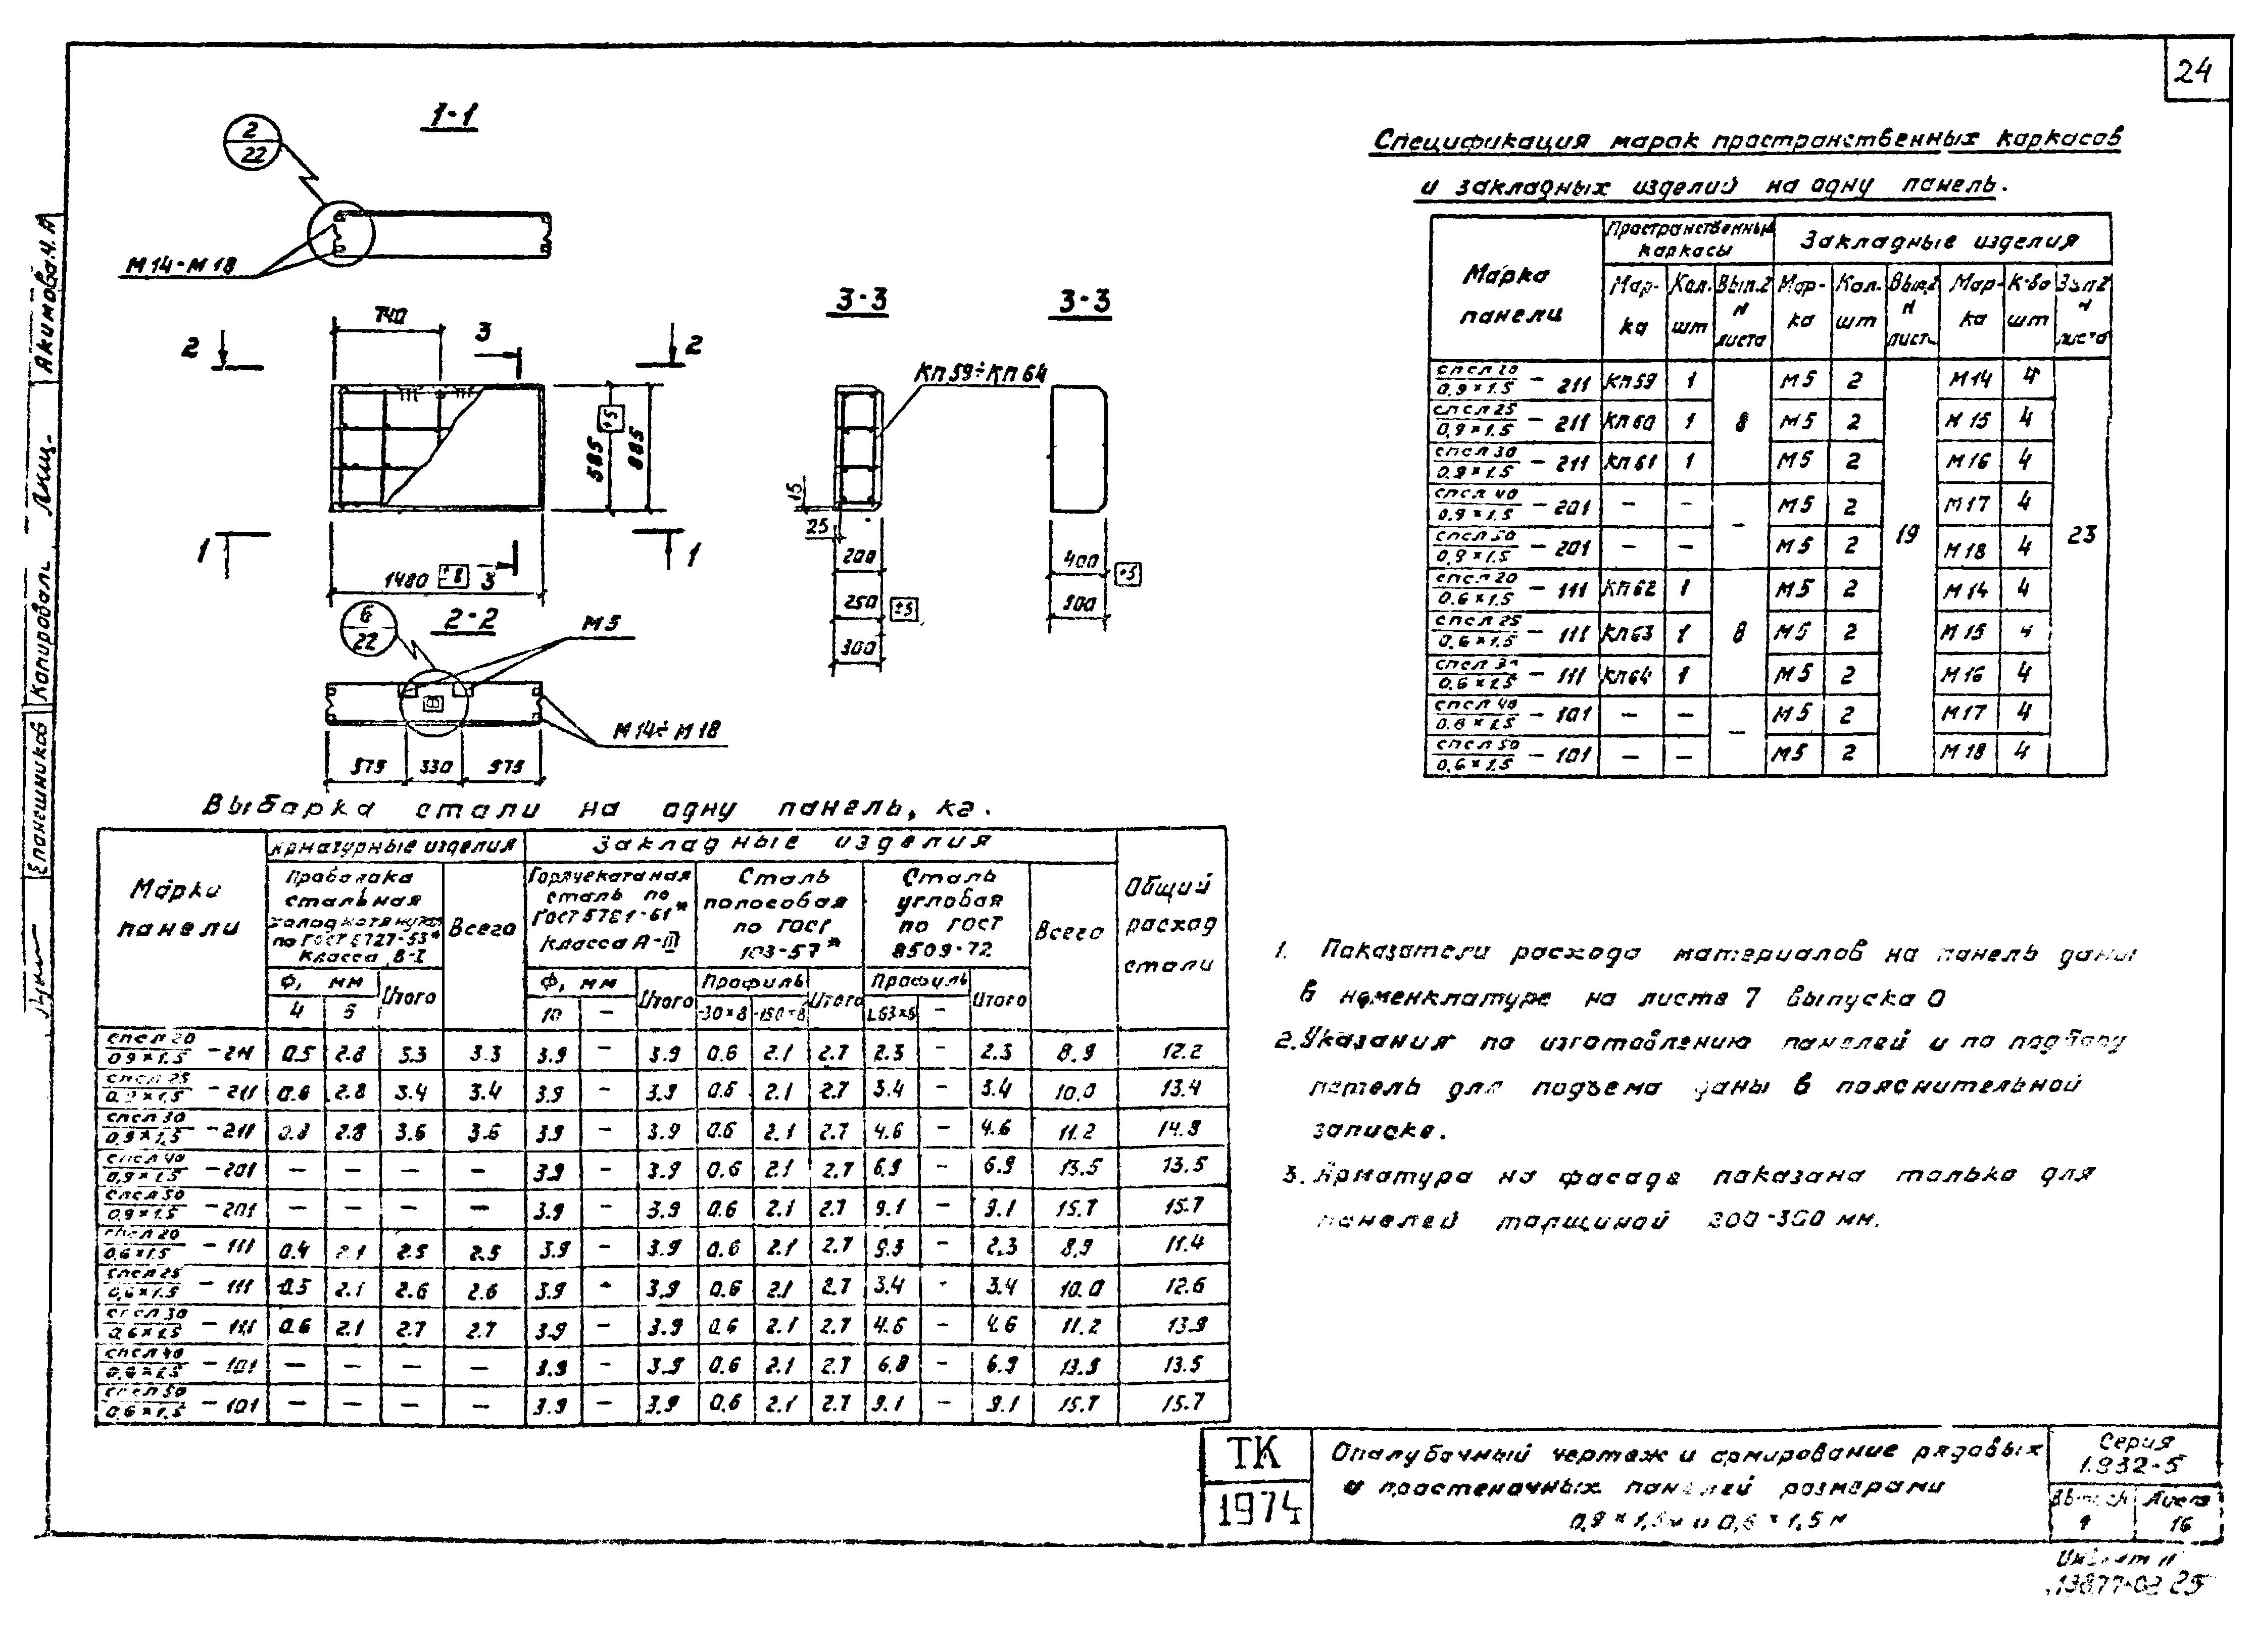 24
1-1
2
22
М14-М18
740
2
2
3
3-3
3-3
КП59÷КП64
±5
585
885
15
25
1
1
1480 ±8 3
200
250 ±5
300
400 ±5
500
6
22
2-2
М5
М14÷М18
575 330 575
Спецификация марок пространственных каркасов
и закладных изделий на одну панель.
Марка панели
Пространственные каркасы
Закладные изделия
Мар-ка Кол. шт Вып.2 N листа Мар-ка Кол. шт Вып.2 N лист. Мар-ка К-во шт Вып2 N листа
спсл 20 / 0.9×1.5 - 211 КП59 1 8 М5 2 19 М14 4 23
спсл 25 / 0,9×1.5 - 211 КП60 1 М5 2 М15 4
спсл 30 / 0.9×1.5 - 211 КП61 1 М5 2 М16 4
спсл 40 / 0.9×1.5 - 201 – – – М5 2 М17 4
спсл 50 / 0,9×1.5 - 201 – – М5 2 М18 4
спсл 20 / 0.6×1.5 - 111 КП62 1 8 М5 2 М14 4
спсл 25 / 0.6×1.5 - 111 КП63 1 М5 2 М15 4
спсл 30 / 0,6×1.5 - 111 КП64 1 М5 2 М16 4
спсл 40 / 0.6×1.5 - 101 – – – М5 2 М17 4
спсл 50 / 0,6×1.5 - 101 – – М5 2 М18 4
Выборка стали на одну панель, кг.
Марки панели
Арматурные изделия
Закладные изделия
Общий расход стали
Проволока стальная холоднотянутая по ГОСТ 6727-53* класса В-I
Всего
Горячекатаная сталь по ГОСТ 5781-61* класса А-III
Сталь полосовая по ГОСТ 103-57*
Сталь угловая по ГОСТ 8509-72
Всего
Ф, мм Итого Ф, мм Итого Профиль Итого Профиль Итого
4 5 10 – -30×8 -150×8 L63×5 –
спсл 20 / 0.9×1.5 - 211 0.5 2.8 3.3 3.3 3.9 – 3.9 0.6 2.1 2.7 2.3 – 2.3 8.9 12.2
спсл 25 / 0.9×1.5 - 211 0.6 2.8 3.4 3.4 3.9 – 3.9 0.6 2.1 2.7 3.4 – 3.4 10.0 13.4
спсл 30 / 0,9×1,5 - 211 0.8 2.8 3.6 3.6 3.9 – 3.9 0.6 2.1 2.7 4.6 – 4.6 11.2 14.8
спсл 40 / 0,9×1.5 - 201 – – – – 3.9 – 3.9 0.6 2.1 2.7 6.9 – 6.9 13.5 13.5
спсл 50 / 0,9×1.5 - 201 – – – – 3.9 – 3.9 0.6 2.1 2.7 9.1 – 9.1 15.7 15.7
спсл 20 / 0,6×1.5 - 111 0.4 2.1 2.5 2.5 3.9 – 3.9 0.6 2.1 2.7 9.3 – 2.3 8,9 11.4
спсл 25 / 0,6×1.5 - 111 0.5 2.1 2.6 2.6 3.9 – 3.9 0.6 2.1 2.7 3.4 – 3.4 10.0 12.6
спсл 30 / 0,6×1.5 - 111 0.6 2.1 2.7 2.7 3.9 – 3.9 0.6 2.1 2.7 4.6 – 4.6 11.2 13.9
спсл 40 / 0,6×1.5 - 101 – – – – 3.9 – 3.9 0.6 2.1 2.7 6.8 – 6.9 13.5 13.5
спсл 50 / 0,6×1.5 - 101 – – – – 3.9 – 3.9 0.6 2.1 2.7 9.1 – 9.1 15.7 15.7
1. Показатели расхода материалов на панель даны
в номенклатуре на листе 7 выпуска 0
2. Указания по изготовлению панелей и по подбору
петель для подъема даны в пояснительной
записке.
3. Арматура на фасаде показана только для
панелей толщиной 200-300 мм.
ТК
1974
Опалубочный чертеж и армирование рядовых
и простеночных панелей размерами
0,9×1,5м и 0,6×1,5м
Серия
1.832-5
Выпуск Лист
1 16
13877-02 25
Акимова Ч.А
Копировалъ
Епанешников